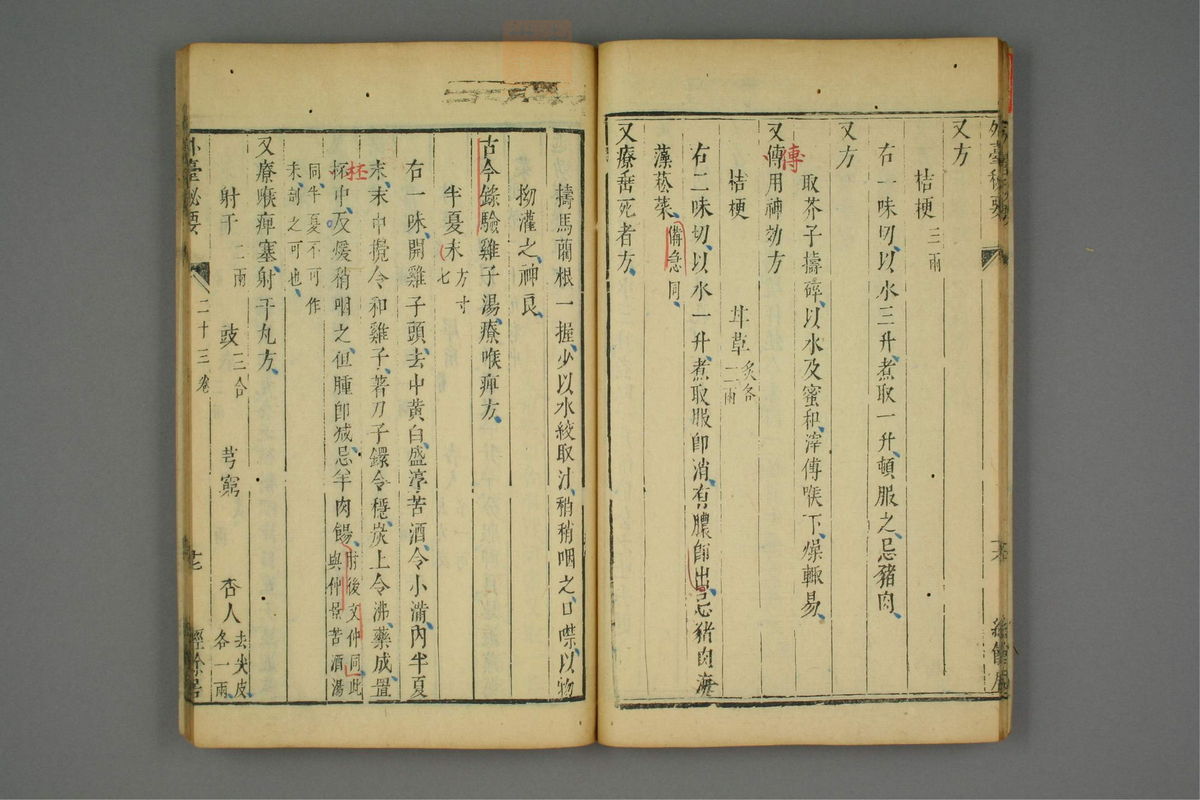 又方
桔梗三兩
右一味切以水三升煮取一升頓服之忌豬肉
又方
取芥子擣碎以水及蜜和滓傅喉下燥輙易
又傳用神効方
傅
桔梗 甘草炙各二兩
右二味切以水一升煮取服卽消有膿卽出忌猪肉海
藻菘菜備急同
又療垂死者方
擣馬藺根一握少以水絞取汁稍稍咽之口噤以物
拗灌之神良
古今錄驗雞子湯療喉痺方
半夏末方寸七
右一味開雞子頭去中黄白盛淳苦酒令小滿内半夏
末末中攪令和雞子著刀子鐶令穩炭上令沸藥成置
杯中及煖稍咽之但腫卽減忌羊肉餳肘後文仲同此與仲景苦酒湯
杯
同半夏不可作末剉之可也
又療喉痺塞射干丸方
射干二兩 豉三合 芎藭 杏人去尖皮各一兩
外臺秘要 二十三卷 經餘居